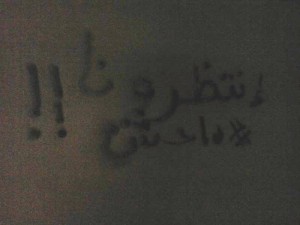 إنتظرونا !!
#داعش